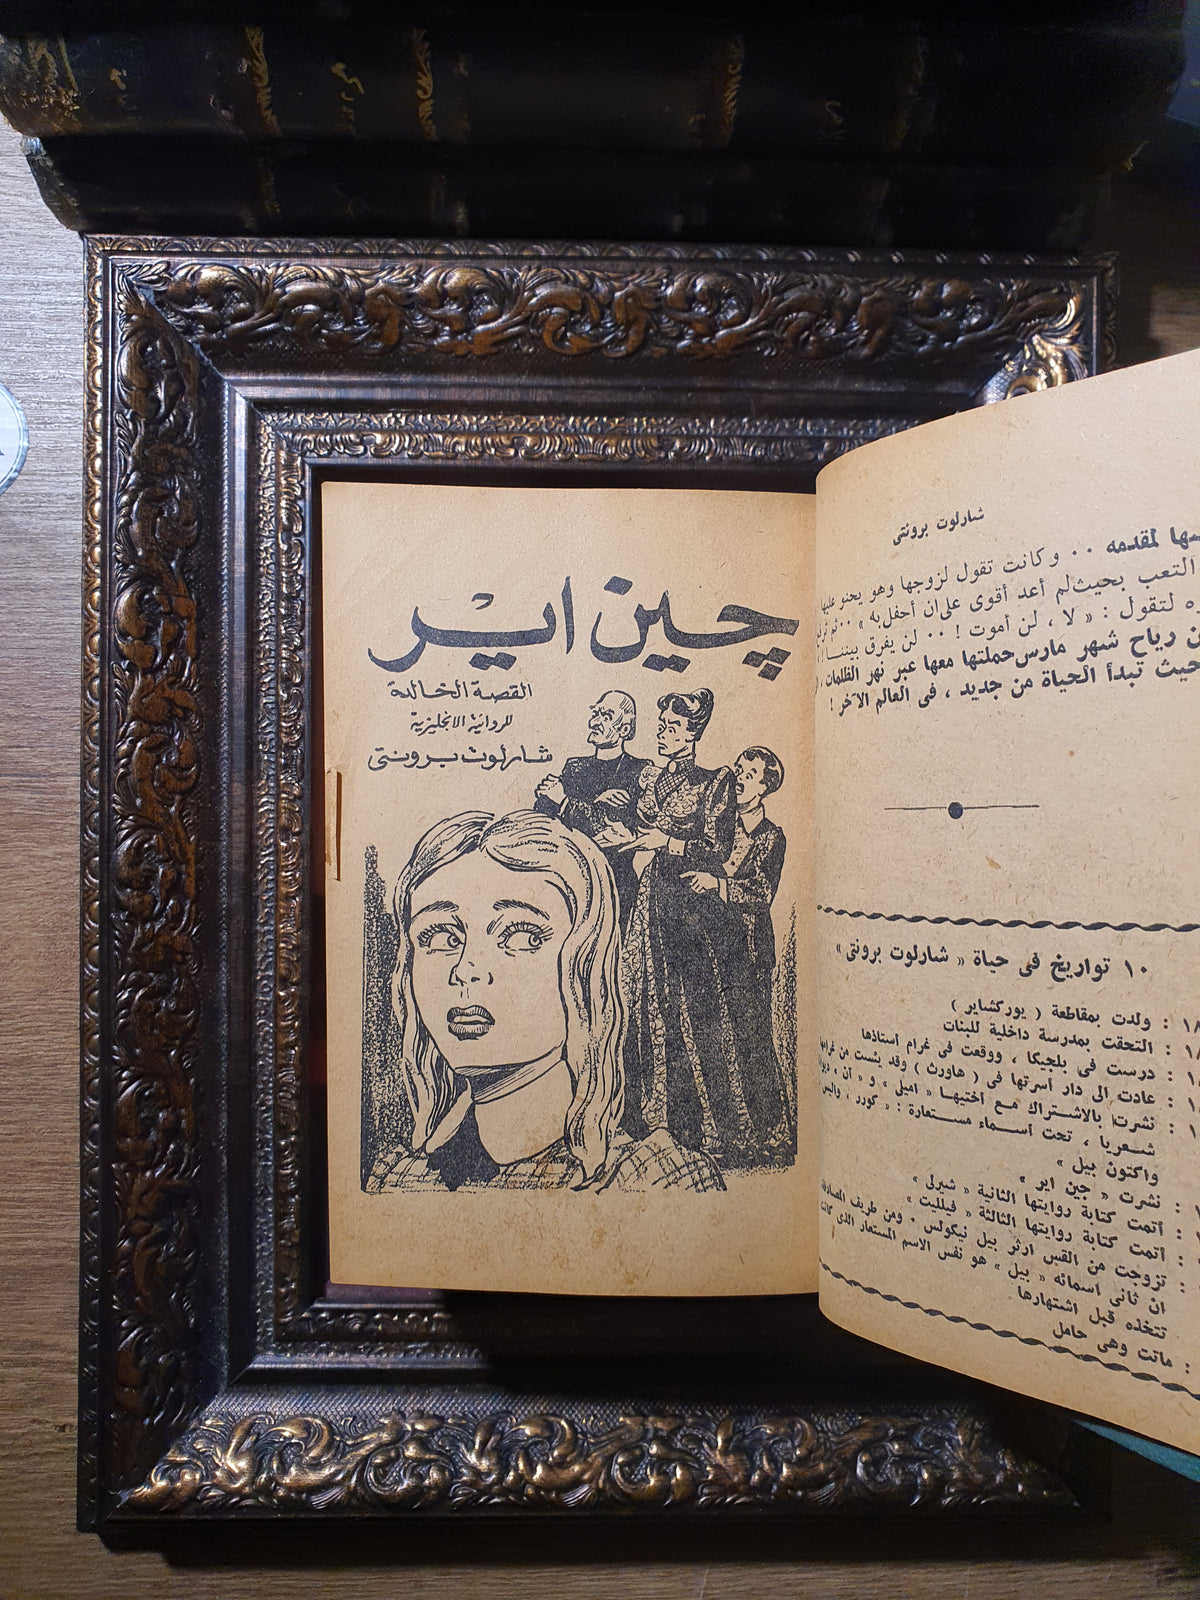 شارلوت برونتى
لمقدمه ٠٠ وكانت تقول لزوجها وهو يحنو عليها
التعب بحيث لم أعد أقوى على ان أحفل به » ٠٠ ثم
لتقول : « لا ، لن أموت ! ٠٠ لن يفرق بيننا
رياح شهر مارس حملتها معها عبر نهر الظلمات ،
حيث تبدأ الحياة من جديد ، فى العالم الآخر !
١٠ تواريخ فى حياة « شارلوت برونتى »
: ولدت بمقاطعة ( يوركشاير )
: التحقت بمدرسة داخلية للبنات
: درست فى بلجيكا ، ووقعت فى غرام أستاذها
: عادت الى دار أسرتها فى ( هاورث ) وقد يئست من
: نشرت بالاشتراك مع أختيها « اميلى » و « آن »
شعريا ، تحت أسماء مستعارة : « كورر ،
واكتون بيل »
: نشرت « جين اير »
: أتمت كتابة روايتها الثانية « شيرلى »
: أتمت كتابة روايتها الثالثة « فيلليت »
: تزوجت من القس ارثر بيل نيكولس ٠ ومن طريف
ان ثانى أسمائه « بيل » هو نفس الاسم المستعار الذى كانت
تتخذه قبل اشتهارها
: ماتت وهى حامل
چين اير
القصة الخالدة
للروائية الانجليزية
شارلوت برونتى